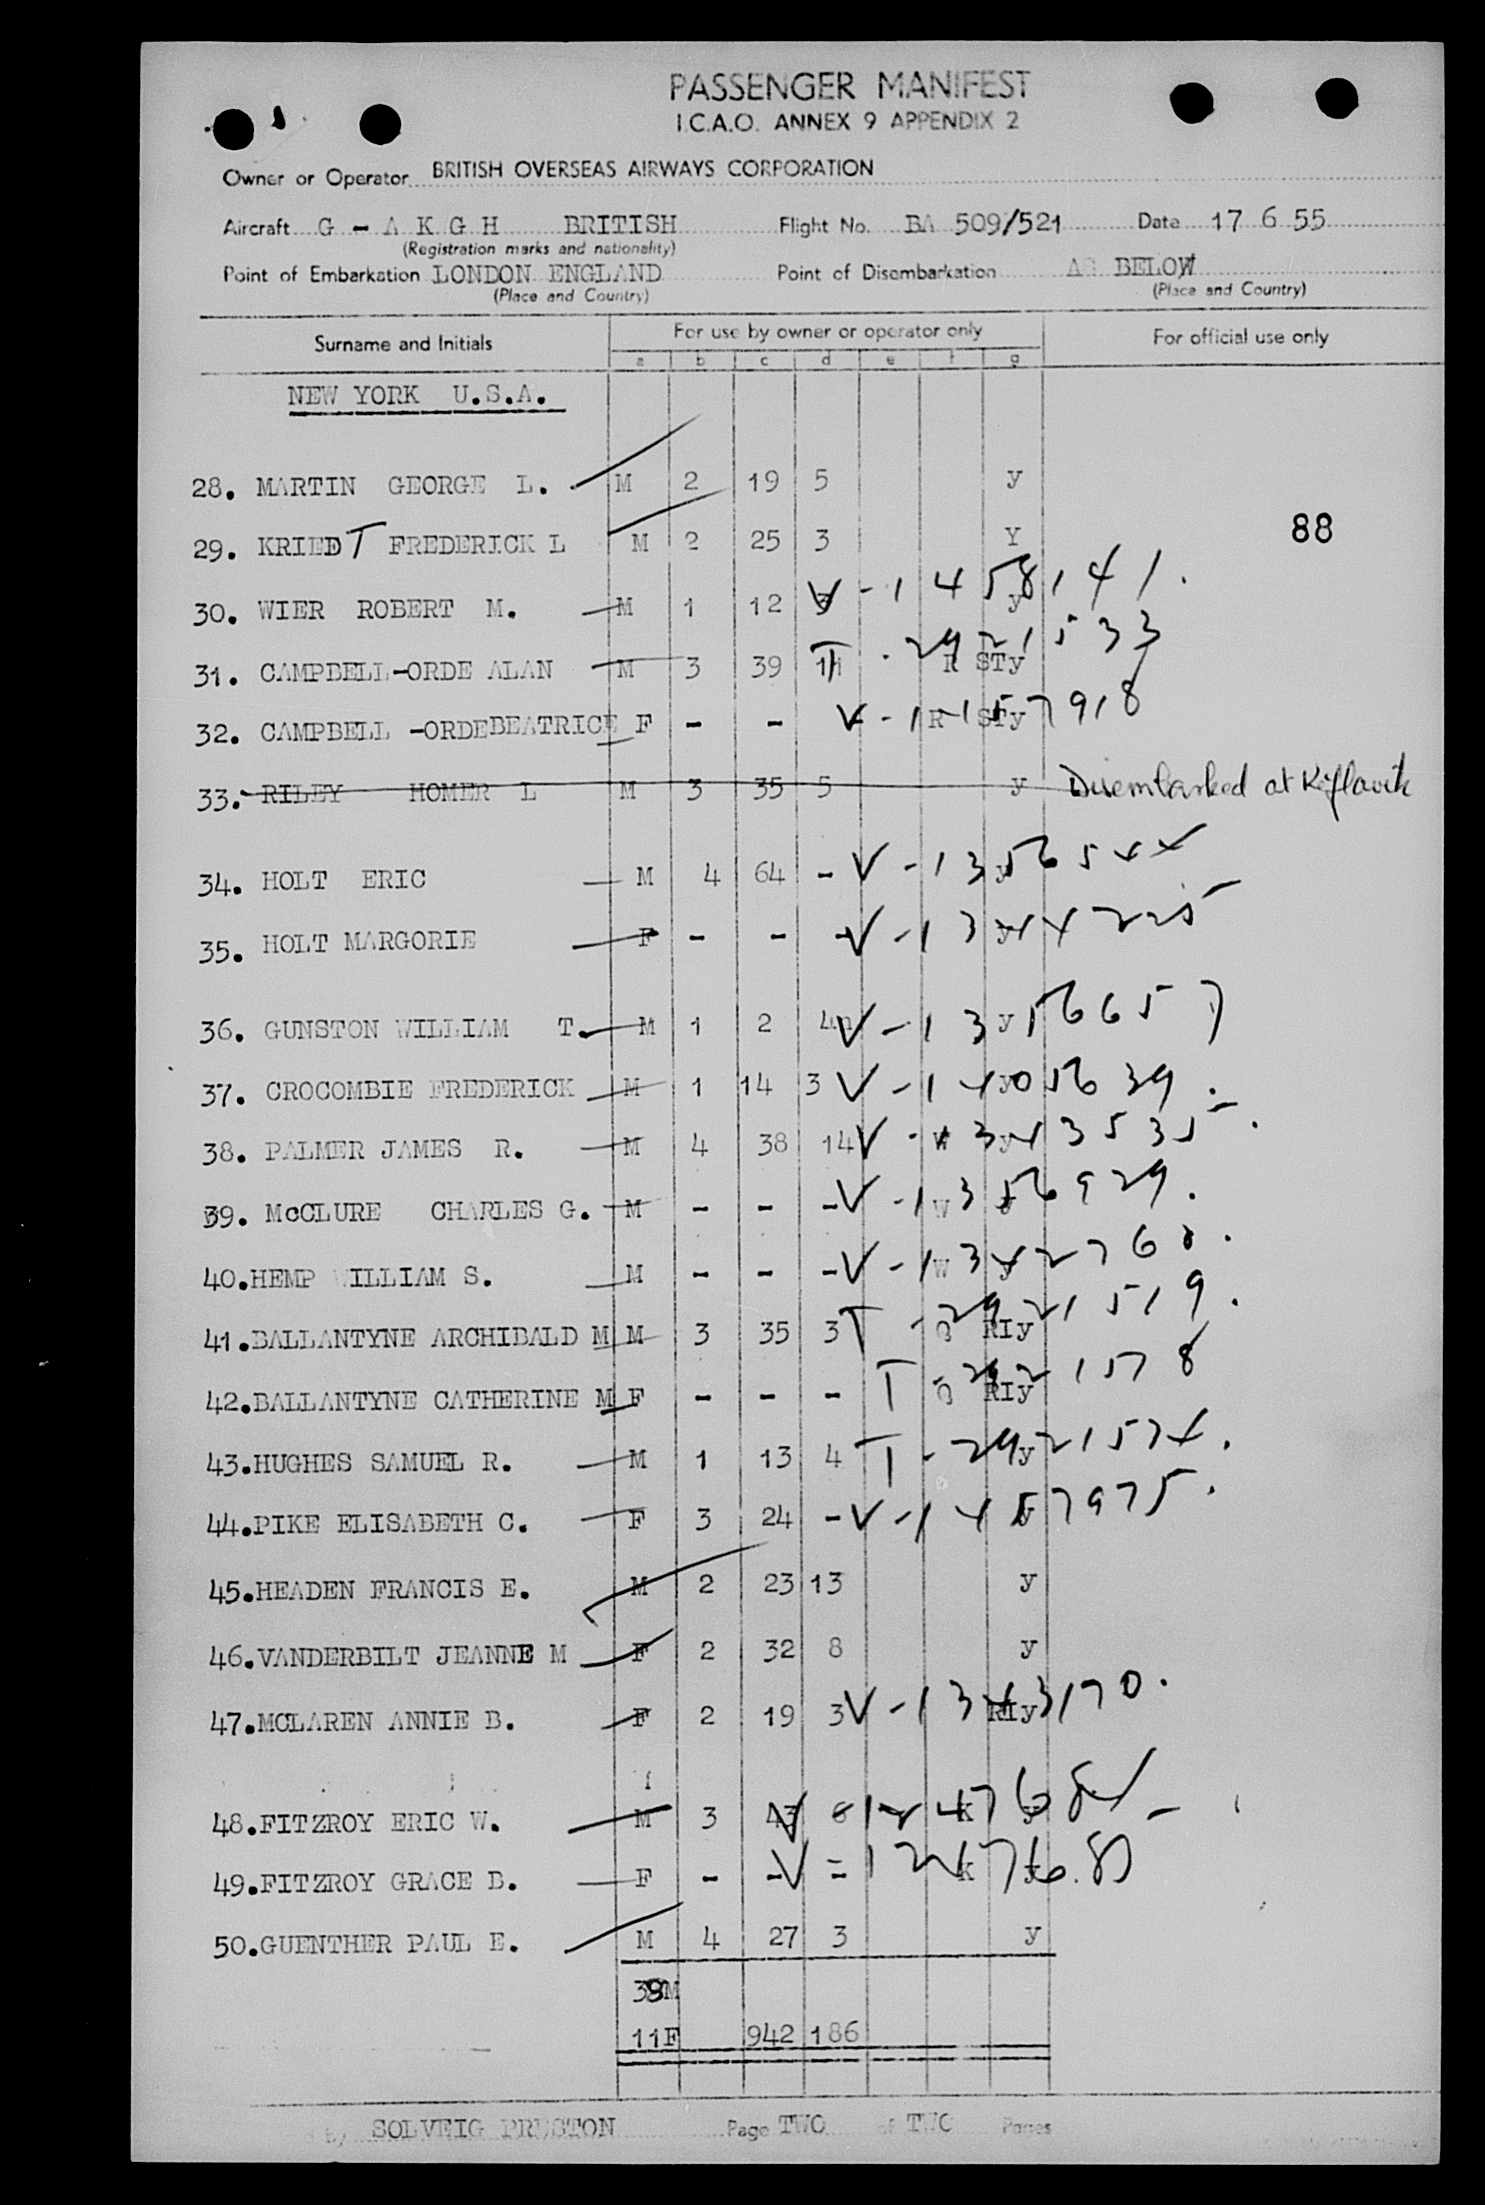 PASSENGER MANIFEST
I.C.A.O. ANNEX 9 APPENDIX 2
Owner or Operator BRITISH OVERSEAS AIRWAYS CORPORATION
Aircraft G - A K G H BRITISH Flight No. BA 509/521 Date 17 6 55
(Registration marks and nationality)
Point of Embarkation LONDON ENGLAND Point of Disembarkation AS BELOW
(Place and Country) (Place and Country)
Surname and Initials For use by owner or operator only For official use only
a b c d e f g
NEW YORK U.S.A.
28. MARTIN GEORGE L. M 2 19 5 y
88
29. KRIEDT FREDERICK L M 2 25 3 Y
30. WIER ROBERT M. M 1 12 V-1458141. y
31. CAMPBELL-ORDE ALAN M 3 39 11 T-2921533 R STy
32. CAMPBELL -ORDEBEATRICE F - - V-1457918 R STy
33. RILEY HOMER L M 3 35 5 y Disembarked at Keflavik
34. HOLT ERIC M 4 64 - V-1356544 y
35. HOLT MARGORIE F - - - V-1344225 y
36. GUNSTON WILLIAM T. M 1 2 V-1356657 y
37. CROCOMBIE FREDERICK M 1 14 3 V-1405639. y
38. PALMER JAMES R. M 4 38 14 V-1343535. y
39. McCLURE CHARLES G. M - - - V-1356929. W
40.HEMP WILLIAM S. M - - - V-1342768. W
41.BALLANTYNE ARCHIBALD M M 3 35 3 T-2921519. Q RIy
42.BALLANTYNE CATHERINE M F - - - T-2921578 Q RIy
43.HUGHES SAMUEL R. M 1 13 4 T-2921574. y
44.PIKE ELISABETH C. F 3 24 - V-1457975.
45.HEADEN FRANCIS E. M 2 23 13 y
46.VANDERBILT JEANNE M F 2 32 8 y
47.MCLAREN ANNIE B. F 2 19 3 V-1343170. RIy
48.FITZROY ERIC W. M 3 43 K
49.FITZROY GRACE B. F - - - K
50.GUENTHER PAUL E. M 4 27 3 y
39M
11F 942 186
by SOLVEIG PRESTON Page TWO of TWO Pages